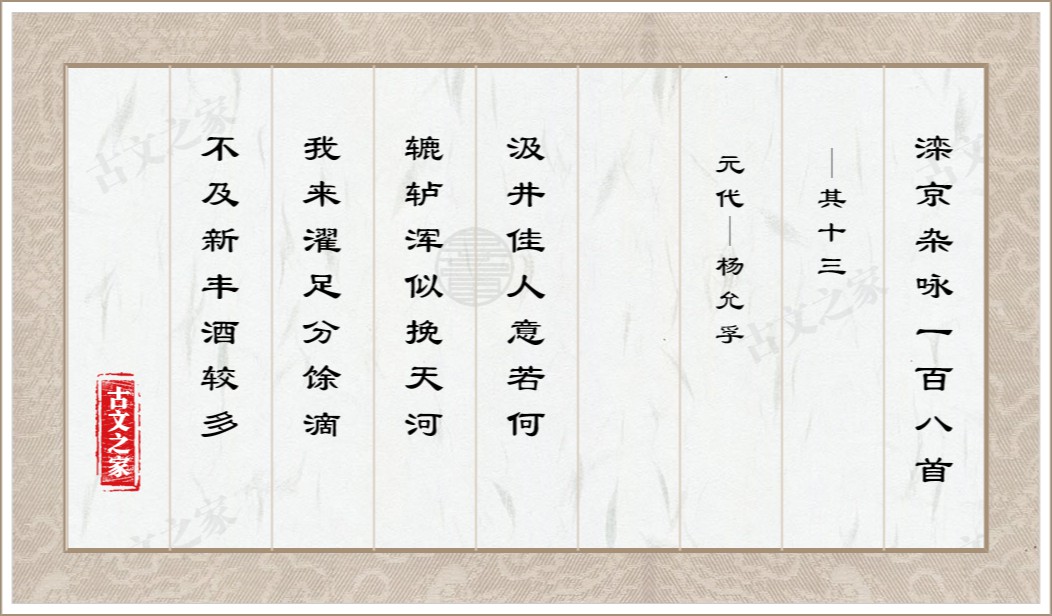 滦京杂咏一百八首
—其十三
元代—杨允孚
汲井佳人意若何
辘轳浑似挽天河
我来濯足分馀滴
不及新丰酒较多
古文之家
古文之家
古文之家
古文之家